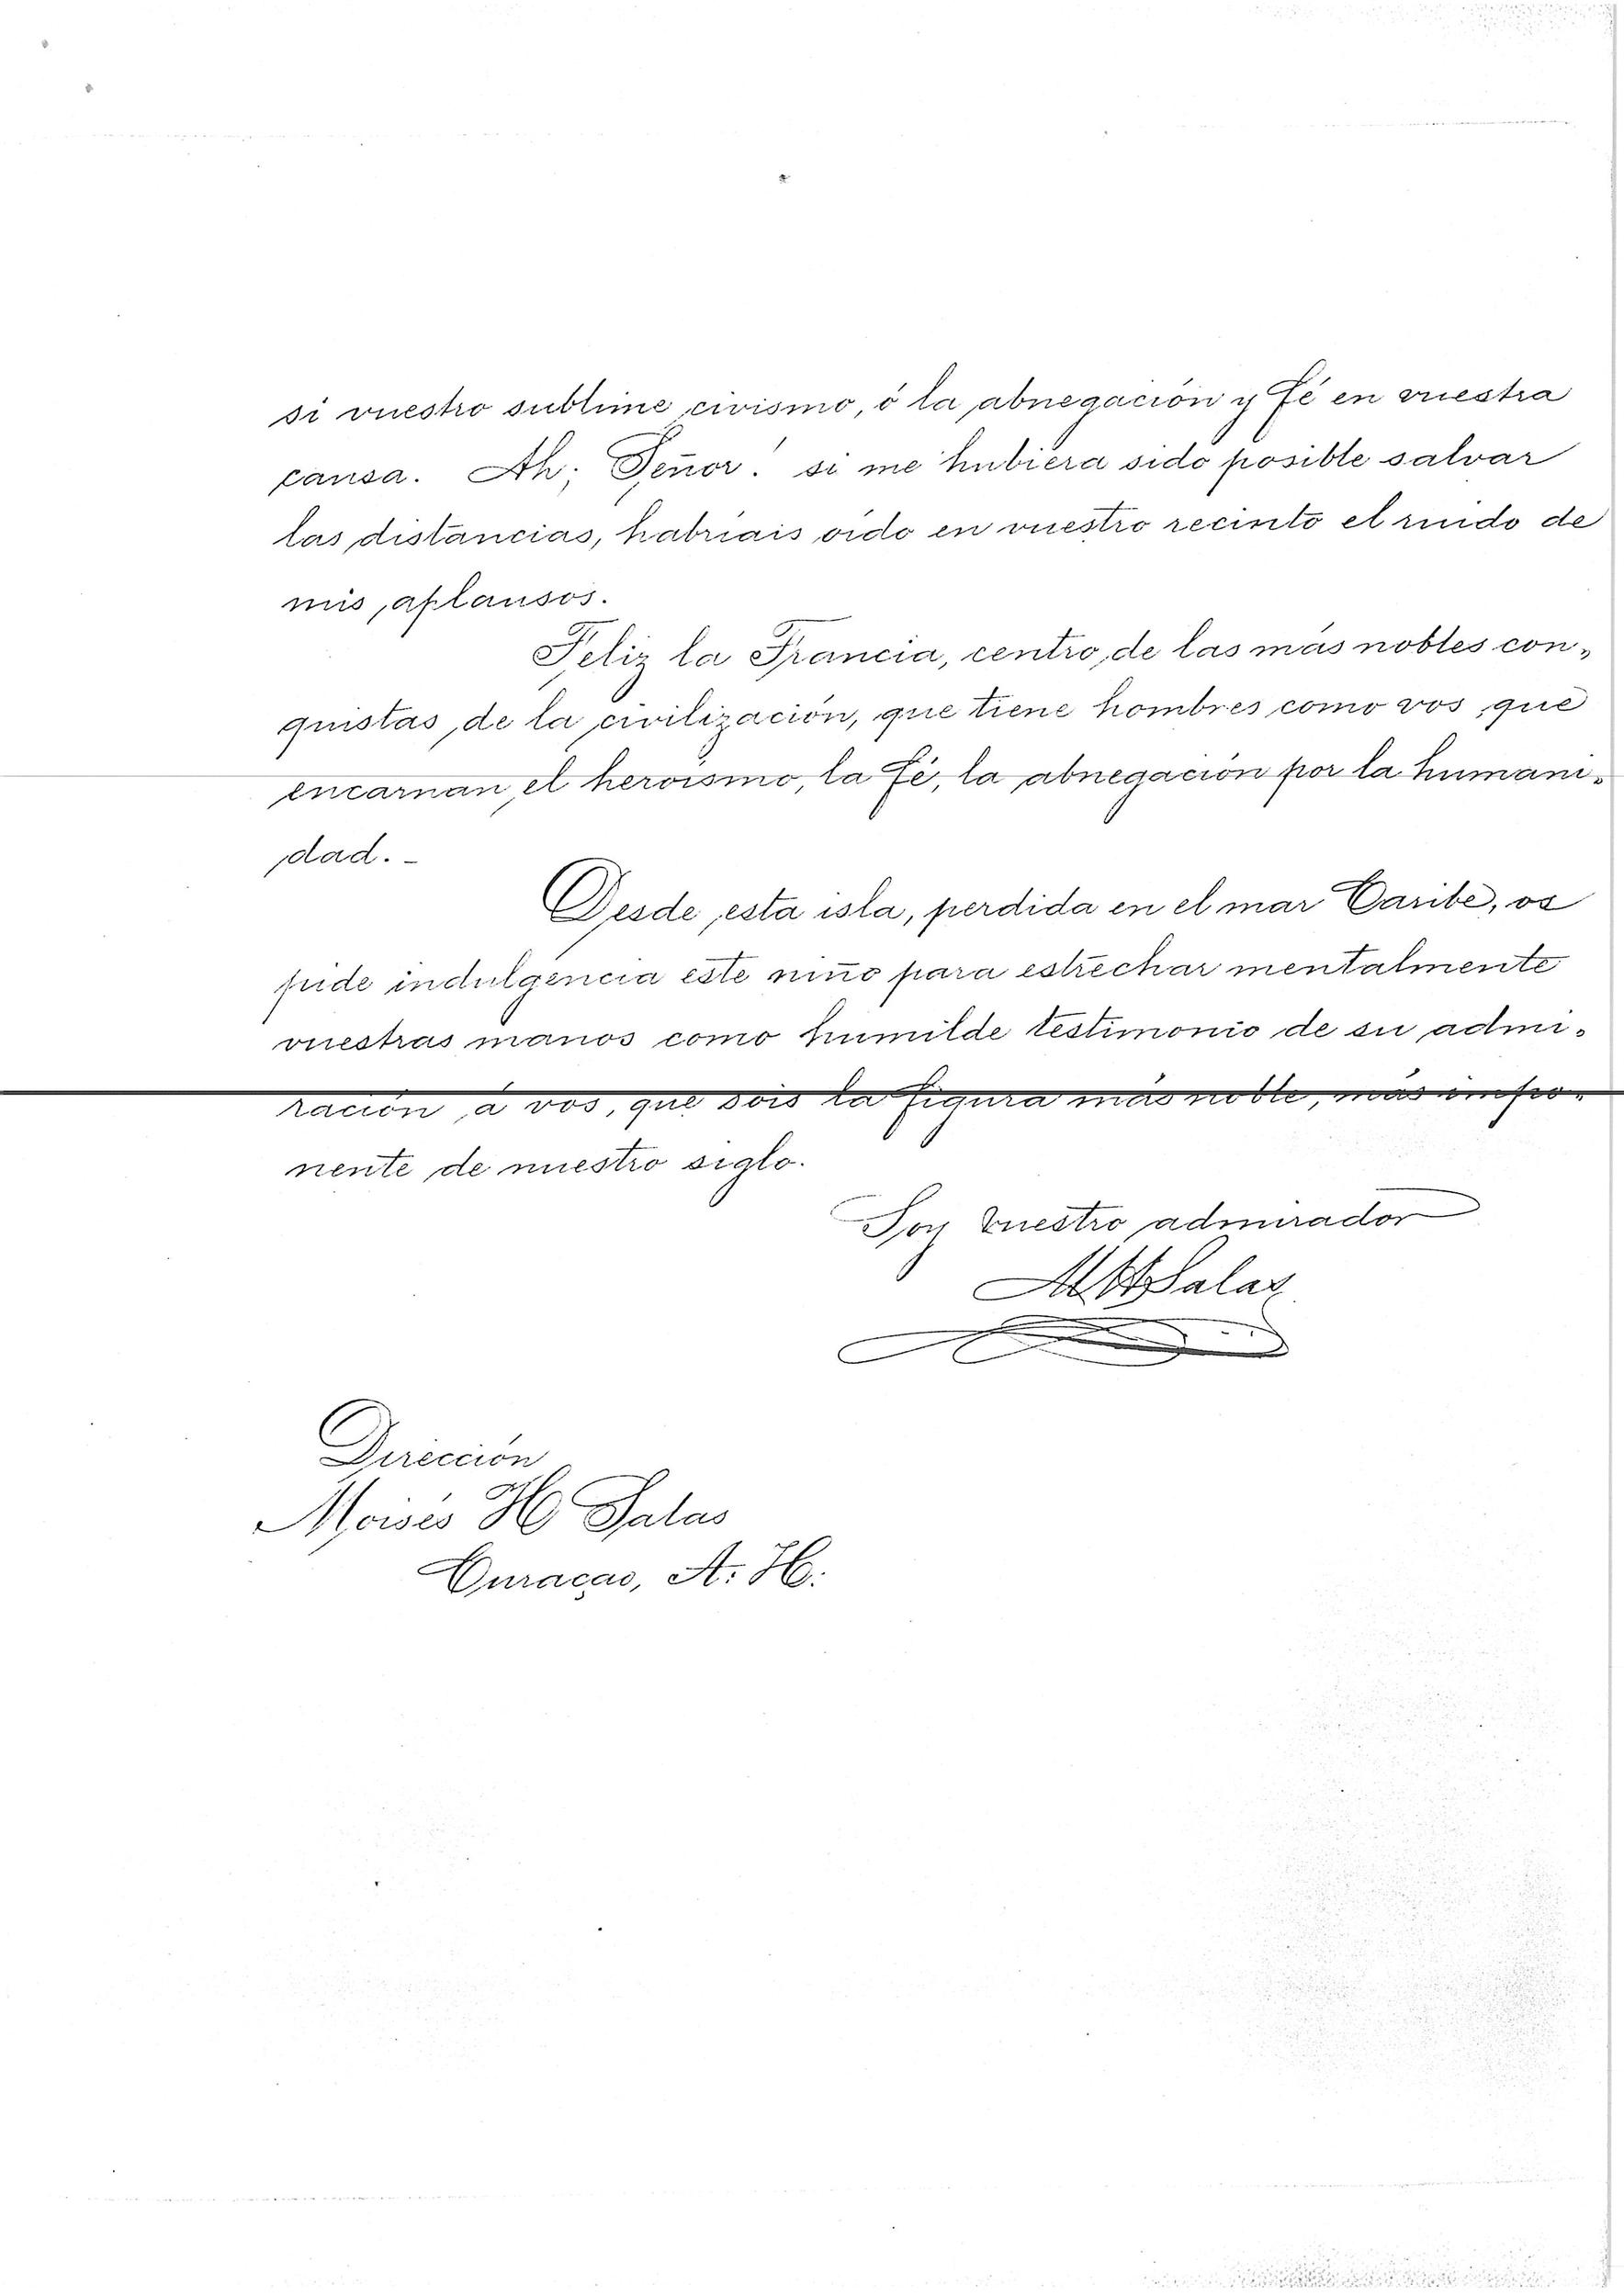 si vuestro sublime civismo, ó la abnegación y fé en vuestra
causa. Ah; Señor! si me hubiera sido posible salvar
las distancias, habríais oido en vuestro recinto el ruido de
mis aplausos.
Feliz la Francia, centro de las más nobles con-
quistas de la civilización, que tiene hombres como vos, que
encarnan el heroísmo, la fé, la abnegación por la humani-
dad. -
Desde esta isla, perdida en el mar Caribe, os
pide indulgencia este niño para estrechar mentalmente
vuestras manos como humilde testimonio de su admi-
ración á vos, que sois la figura más noble, más impo-
nente de nuestro siglo.
Soy vuestro admirador
MHSalas
Dirección
Moisés H Salas
Curaçao, A. H.